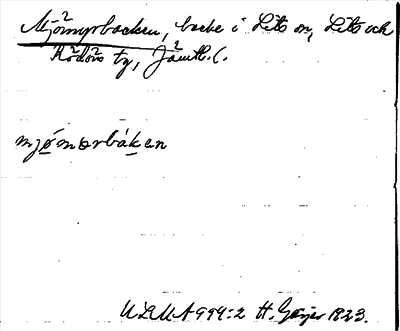 Mjömyrbacken, backe i Lits sn, Lits och
Rödöns tg, Jämtl. l.
mjømɵrbáken
ULMA 999:2 H. Geijer 1923.